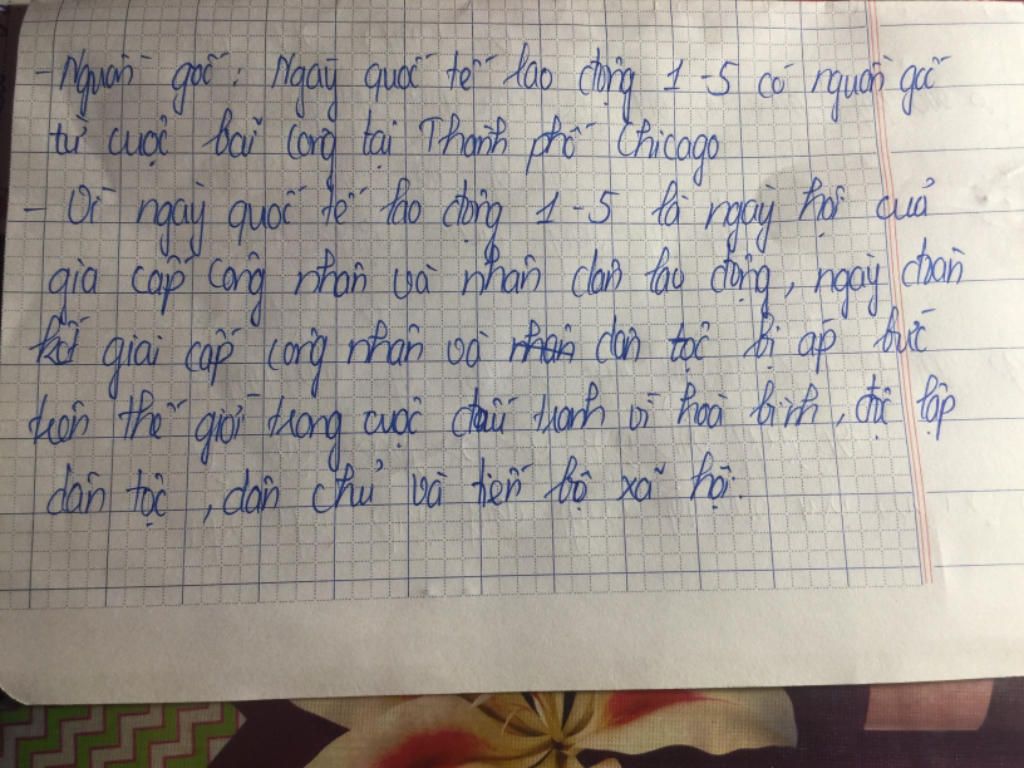 - Nguồn gốc: Ngày quốc tế lao động 1-5 có nguồn gốc
từ cuộc bãi công tại Thành phố Chicago
- Vì ngày quốc tế lao động 1-5 là ngày hội của
gia cấp công nhân và nhân dân lao động, ngày đoàn
kết giai cấp công nhân và nhân dân tộc bị áp bức
trên thế giới trong cuộc đấu tranh vì hoà bình, độc lập
dân tộc, dân chủ và tiến bộ xã hội.